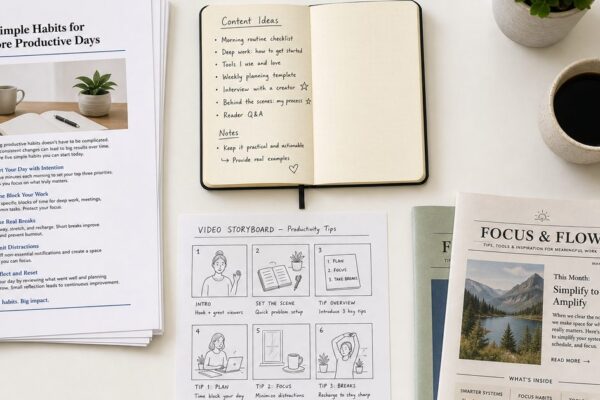 Simple Habits for
More Productive Days
productive habits doesn't have to be complicated.
consistent changes can lead to big results over time.
are five simple habits you can start today.
Your Day with Intention
minutes each morning to set your top three priorities.
focus on what truly matters.
Block Your Work
specific blocks of time for deep work, meetings,
tasks. Protect your focus.
Real Breaks
stretch, and recharge. Short breaks improve
and prevent burnout.
Distractions
off non-essential notifications and create a space
you can focus.
and Reset
day by reviewing what went well and planning
Small reflection leads to continuous improvement.
habits. Big impact.
Content Ideas
• Morning routine checklist
• Deep work: how to get started
• Tools I use and love
• Weekly planning template
• Interview with a creator ☆
• Behind the scenes: my process ☆
• Reader Q&A
Notes
• Keep it practical and actionable
↳ Provide real examples
♡
VIDEO STORYBOARD – Productivity Tips
1
2
3
1. PLAN
2. FOCUS
3. TAKE BREAKS
INTRO
Hook + greet viewers
SET THE SCENE
Quick problem setup
TIP OVERVIEW
Introduce 3 key tips
4
5
6
TIP 1: PLAN
Time block your day
TIP 2: FOCUS
Minimize distractions
TIP 3: BREAKS
Recharge to stay sharp
F
FOCUS & FLOW
TIPS, TOOLS & INSPIRATION FOR MEANINGFUL WORK
This Month:
Simplify to
Amplify
When we clear the
we make space for
really matters. Here's
to simplify your
schedule, and focus.
READ MORE →
WHAT'S INSIDE
SMARTER SYSTEMS
FOCUS HABITS